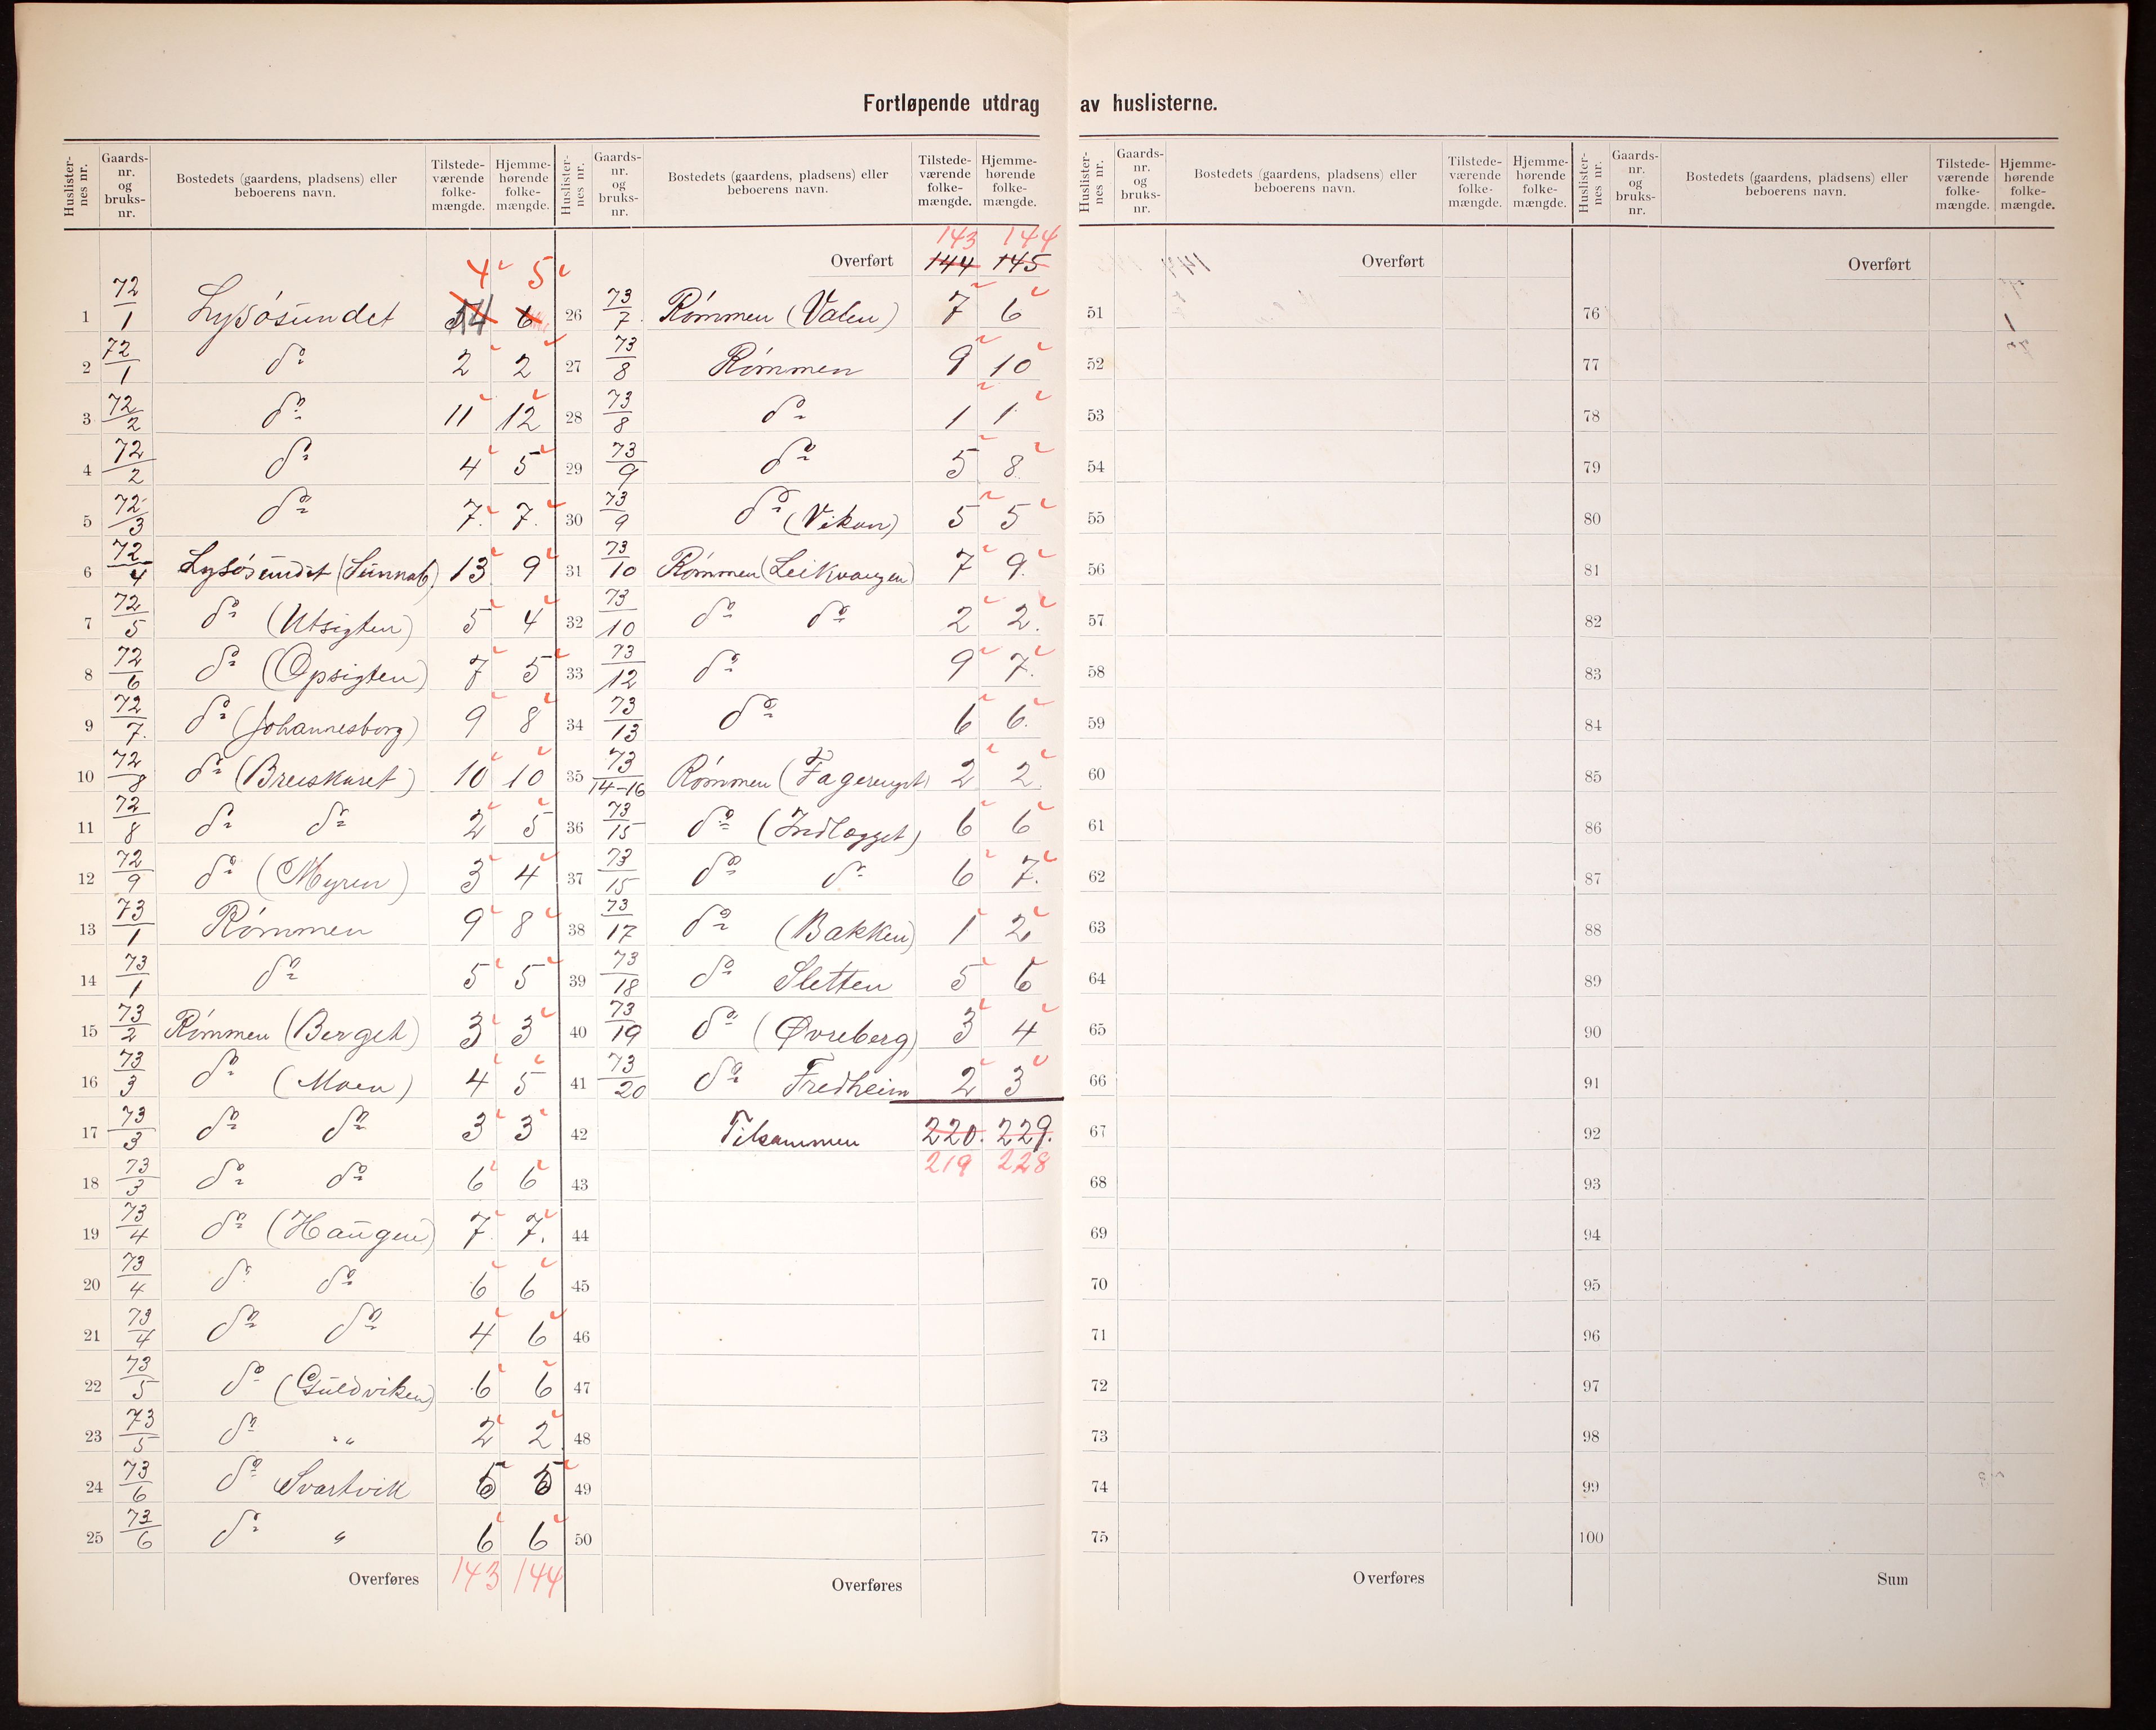 Fortløpende utdrag av huslisterne.
Huslisternes nr. | Gaards-nr. og bruks-nr. | Bostedets (gaardens, pladsens) eller beboerens navn. | Tilstedeværende folkemængde. | Hjemmehørende folkemængde.
4 5
1 72/1 Lysøsundet 6
2 72/1 do 2 2
3 72/2 do 11 12
4 72/2 do 4 5
5 72/3 do 7. 7.
6 72/4 Lysøsundet (Sunnab) 13 9
7 72/5 do (Utsigten) 5 4
8 72/6 do (Opsigten) 7 5
9 72/7. do (Johannesborg) 9 8
10 72/8 do (Breiskaret) 10 10
11 72/8 do do 2 5
12 72/9 do (Myren) 3 4
13 73/1 Rømmen 9 8
14 73/1 do 5 5
15 73/2 Rømmen (Berget) 3 3
16 73/3 do (Moen) 4 5
17 73/3 do do 3 3
18 73/3 do do 6 6
19 73/4 do (Haugen) 7. 7.
20 73/4 do do 6 6
21 73/4 do do 4 6
22 73/5 do (Guldviken) 6 6
23 73/5 do " 2 2
24 73/6 do Svartvik 5 5
25 73/6 do " 6 6
Overføres 143 144
Huslisternes nr. | Gaards-nr. og bruks-nr. | Bostedets (gaardens, pladsens) eller beboerens navn. | Tilstedeværende folkemængde. | Hjemmehørende folkemængde.
143 144
Overført 144 145
26 73/7 Rømmen (Valen) 7 6
27 73/8 Rømmen 9 10
28 73/8 do 1 1
29 73/9 do 5 8
30 73/9 do (Vikan) 5 5
31 73/10 Rømmen (Leikvangen) 7 9.
32 73/10 do do 2 2.
33 73/12 do 9 7.
34 73/13 do 6 6.
35 73/14-16 Rømmen (Fagerenget) 2 2.
36 73/15 do (Indlægget) 6 6
37 73/15 do do 6 7.
38 73/17 do (Bakken) 1 2
39 73/18 do Sletten 5 6
40 73/19 do (Øvreberg) 3 4
41 73/20 do Fredheim 2 3
42 Tilsammen 220. 229.
219 228
43
44
45
46
47
48
49
50
Overføres
Huslisternes nr. | Gaards-nr. og bruks-nr. | Bostedets (gaardens, pladsens) eller beboerens navn. | Tilstedeværende folkemængde. | Hjemmehørende folkemængde.
Overført
51
52
53
54
55
56
57
58
59
60
61
62
63
64
65
66
67
68
69
70
71
72
73
74
75
Overføres
Huslisternes nr. | Gaards-nr. og bruks-nr. | Bostedets (gaardens, pladsens) eller beboerens navn. | Tilstedeværende folkemængde. | Hjemmehørende folkemængde.
Overført
76
77
78
79
80
81
82
83
84
85
86
87
88
89
90
91
92
93
94
95
96
97
98
99
100
Sum